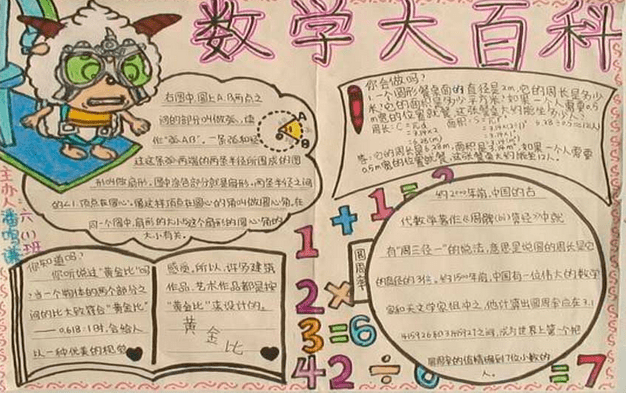 数学大百科
右图中,圆上A、B两点之
间的部分叫做弧,读
作"弧AB",一条弧和经
过这条弧两端的两条半径所围成的图
形叫做扇形。图中涂色部分就是扇形。两条半径之间
的∠1,顶点在圆心。像这样顶点在圆心的角叫做圆心角。在
同一个圆中,扇形的大小与这个扇形的圆心角的
大小有关。
A
B
你会做吗?
1.一个圆形餐桌面的直径是2m,它的周长是多少
米?它的面积是多少平方米?如果一个人需要0.5
m宽的位置就餐,这张餐桌大约能坐多少人?
周长:C=πd
答:它的周长是6.28m,面积是3.14m²,如果一个人需要
0.5m宽的位置就餐,这张餐桌大约能坐12人。
主办人:
六(1)班
你知道吗?
你听说过"黄金比"吗
?当一个物体的两个部分之
间的比大致符合"黄金比"
——0.618:1时,会给人
以一种优美的视觉
感受。所以,许多建筑
作品、艺术作品都是按
"黄金比"来设计的。
黄金比
圆周率
约2000年前,中国的古
代数学著作《周髀算经》中就
有"周三径一"的说法,意思是说圆的周长是它
的直径的3倍。约1500年前,中国有一位伟大的数学
家和天文学家祖冲之。他计算出圆周率应在3.1
415926和3.1415927之间,成为世界上第一个把
圆周率的值精确到7位小数的
人。
1+1=2
2×
3=6
42÷6=7